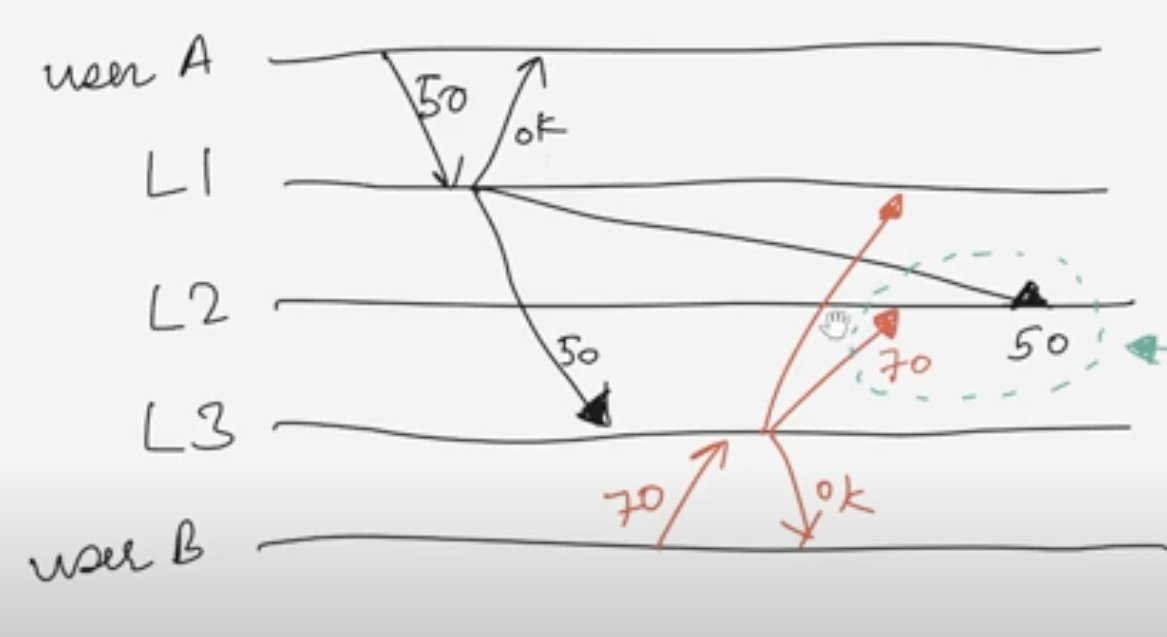 user A
50
OK
L1
L2
50
50
70
L3
70
OK
user B